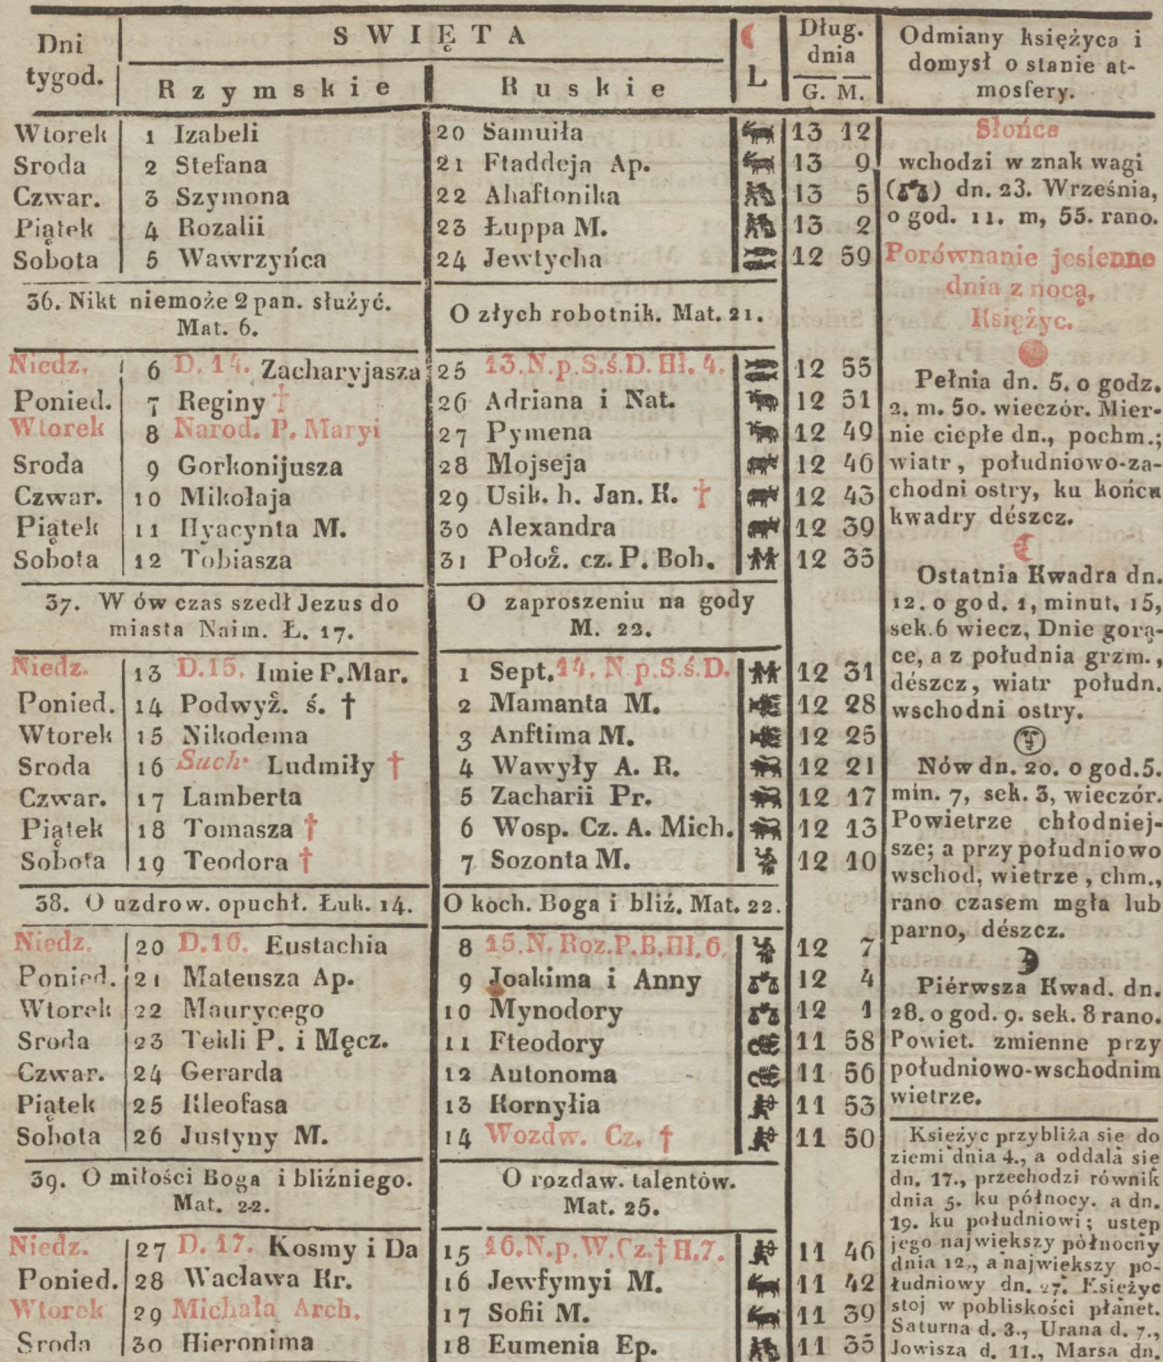 Dni tygod. S W I Ę T A L Dług. dnia Odmiany księżyca i
domysł o stanie at-
mosfery.
Rzymskie Ruskie G. M.
Wtorek 1 Izabeli 20 Samuiła 13 12
Sroda 2 Stefana 21 Ftaddeja Ap. 13 9
Czwar. 3 Szymona 22 Ahaftonika 13 5
Piątek 4 Rozalii 23 Łuppa M. 13 2
Sobota 5 Wawrzyńca 24 Jewtycha 12 59
36. Nikt niemoże 2 pan. służyć.
Mat. 6.
O złych robotnik. Mat. 21.
Niedz. 6 D. 14. Zacharyjasza 25 13.N.p.S.ś.D. Hł. 4. 12 55
Ponied. 7 Reginy † 26 Adriana i Nat. 12 51
Wtorek 8 Narod. P. Maryi 27 Pymena 12 49
Sroda 9 Gorkonijusza 28 Mojseja 12 46
Czwar. 10 Mikołaja 29 Usik. h. Jan. K. † 12 43
Piątek 11 Hyacynta M. 30 Alexandra 12 39
Sobota 12 Tobiasza 31 Położ. cz. P. Boh. 12 35
37. W ów czas szedł Jezus do
miasta Naim. Ł. 17.
O zaproszeniu na gody
M. 22.
Niedz. 13 D.15. Imie P.Mar. 1 Sept. 14. N p.S.ś.D. 12 31
Ponied. 14 Podwyż. ś. † 2 Mamanta M. 12 28
Wtorek 15 Nikodema 3 Anftima M. 12 25
Sroda 16 Such. Ludmiły † 4 Wawyły A. R. 12 21
Czwar. 17 Lamberta 5 Zacharii Pr. 12 17
Piątek 18 Tomasza † 6 Wosp. Cz. A. Mich. 12 13
Sobota 19 Teodora † 7 Sozonta M. 12 10
38. O uzdrow. opuchł. Łuk. 14.
O koch. Boga i bliź. Mat. 22.
Niedz. 20 D.16. Eustachia 8 15.N. Roz.P.B.Hł.6. 12 7
Ponied. 21 Mateusza Ap. 9 Joakima i Anny 12 4
Wtorek 22 Maurycego 10 Mynodory 12 1
Sroda 23 Tekli P. i Męcz. 11 Fteodory 11 58
Czwar. 24 Gerarda 12 Autonoma 11 56
Piątek 25 Kleofasa 13 Kornyłia 11 53
Sobota 26 Justyny M. 14 Wozdw. Cz. † 11 50
39. O miłości Boga i bliźniego.
Mat. 22.
O rozdaw. talentów.
Mat. 25.
Niedz. 27 D. 17. Kosmy i Da 15 16.N.p.W.Cz.† H.7. 11 46
Ponied. 28 Wacława Kr. 16 Jewfymyi M. 11 42
Wtorek 29 Michała Arch. 17 Sofii M. 11 39
Sroda 30 Hieronima 18 Eumenia Ep. 11 35
Słońce
wchodzi w znak wagi
(♎) dn. 23. Września,
o god. 11. m, 55. rano.
Porównanie jesienne
dnia z nocą.
Księżyc.
Pełnia dn. 5. o godz.
2. m. 50. wieczór. Mier-
nie ciepłe dn., pochm.;
wiatr, południowo-za-
chodni ostry, ku końcu
kwadry dészcz.
Ostatnia Kwadra dn.
12. o god. 1, minut. 15,
sek.6 wiecz, Dnie gorą-
ce, a z południa grzm.,
dészcz, wiatr połudn.
wschodni ostry.
Nów dn. 20. o god.5.
min. 7, sek. 3, wieczór.
Powietrze chłodniej-
sze; a przy południowo
wschod, wietrze, chm.,
rano czasem mgła lub
parno, dészcz.
Piérwsza Kwad. dn.
28. o god. 9. sek. 8 rano.
Powiet. zmienne przy
południowo-wschodnim
wietrze.
Księżyc przybliża się do
ziemi dnia 4., a oddala się
dn. 17., przechodzi równik
dnia 5. ku północy. a dn.
19. ku południowi; ustęp
jego największy północny
dnia 12., a największy po-
łudniowy dn. 27. Księżyc
stoj w pobliskości płanet.
Saturna d. 3., Urana d. 7.,
Jowisza d. 11., Marsa dn.